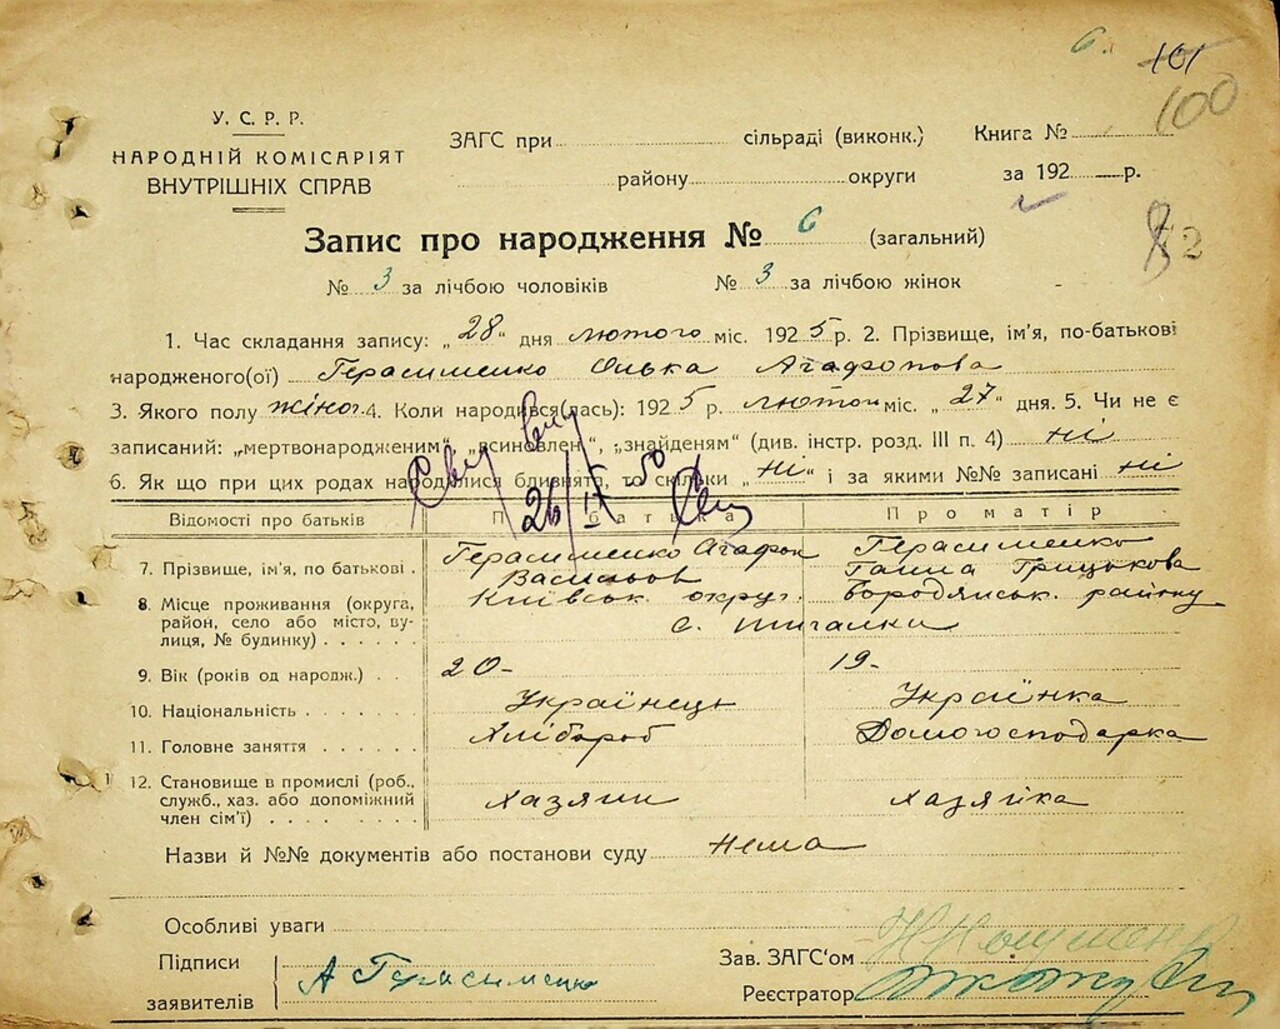 6.
101
100
У. С. Р. Р.
НАРОДНІЙ КОМІСАРІЯТ
ВНУТРІШНІХ СПРАВ
ЗАГС при сільраді (виконк.) Книга №
району округи за 192 р.
82
Запис про народження № 6 (загальний)
№ 3 за лічбою чоловіків № 3 за лічбою жінок
1. Час складання запису: „28“ дня лютого міс. 1925 р. 2. Прізвище, ім'я, по-батькові
народженого(ої) Герасименко Олька Агафонова
3. Якого полу жіноч. 4. Коли народився(лась): 1925 р. лютого міс. „27“ дня. 5. Чи не є
записаний: „мертвонародженим“, „всиновлен“, „знайденям“ (див. інстр. розд. III п. 4) ні
6. Як що при цих родах народилися близнята, то скільки „ні“ і за якими №№ записані ні
26/IX 50
Відомості про батьків Про батька Про матір
7. Прізвище, ім'я, по батькові . Герасименко Агафон Васильов Герасименко Ганна Грицькова
8. Місце проживання (округа, Київськ. округ. Бородянськ. району
район, село або місто, ву- с.
лиця, № будинку) . . . . . .
9. Вік (років од народж.) . . 20- 19-
10. Національність . . . . . . . Українець Українка
11. Головне заняття . . . . . . Хлібороб Домогосподарка
12. Становище в промислі (роб.,
служб., хаз. або допоміжний Хазяин Хазяйка
член сім'ї) . . . . . . . . .
Назви й №№ документів або постанови суду нема
Особливі уваги
Підписи Зав. ЗАГС'ом
заявителів А Герасименко Реєстратор